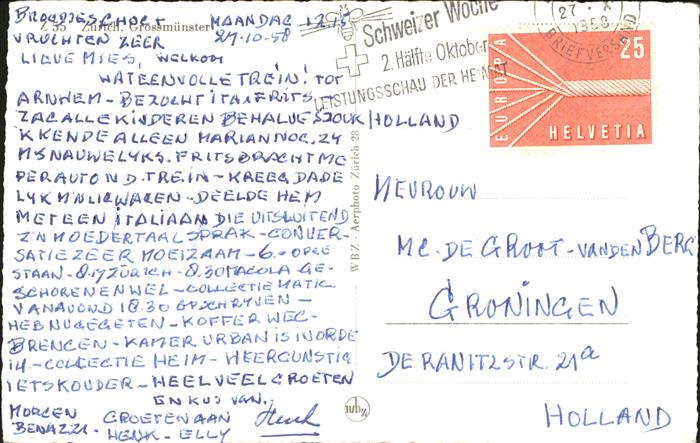 BROODJESCHOTT MAANDAG 12.45
VRUCHTEN ZEER 27-10-58
Z 55 Zürich. Grossmünster
LIEVE MIES, WELKOM
WAT EEN VOLLE TREIN! TOT
ARNHEM - BEZOCHT ITAX FRITS
ZAG ALLE KINDEREN BEHALVE SJOUK
KENDE ALLEEN MARIAN NOG. 24
MS NAUWELYKS. FRITS BRACHT ME
PER AUTO N D. TREIN - KREEG DADE
LYK M'N LIGWAGEN - DEELDE HEM
MET EEN ITALIAAN DIE UITSLUITEND
Z'N MOEDERTAAL SPRAK - CONVER-
SATIE ZEER MOEIZAAM - 6.- OPGE
STAAN - 8.17 ZÜRICH - 8.30 GE-
SCHOREN EN WEL - COLLECTIE
VANAVOND 18.30 -
HEB NU GEGETEN - KOFFER WEG-
BRENGEN - KAMER URBAN IS IN ORDE
14 - COLLECTIE HEIM - HEER GUNSTIG
IETS KOUDER - HEEL VEEL GROETEN
EN KUS VAN,
MORGEN GROETEN AAN Henk
BENAZZI - HENK - ELLY
WBZ - Aerophoto Zürich 28
wbz
Schweizer Woche
2. Hälfte Oktober
LEISTUNGSSCHAU DER HEIMAT
27. X
1958
BRIEFVERSAND
EUROPA
25
HELVETIA
HOLLAND
MEVROUW
MC. DE GROOT - VAN DEN BERG
GRONINGEN
DE RANITZSTR. 21a
HOLLAND